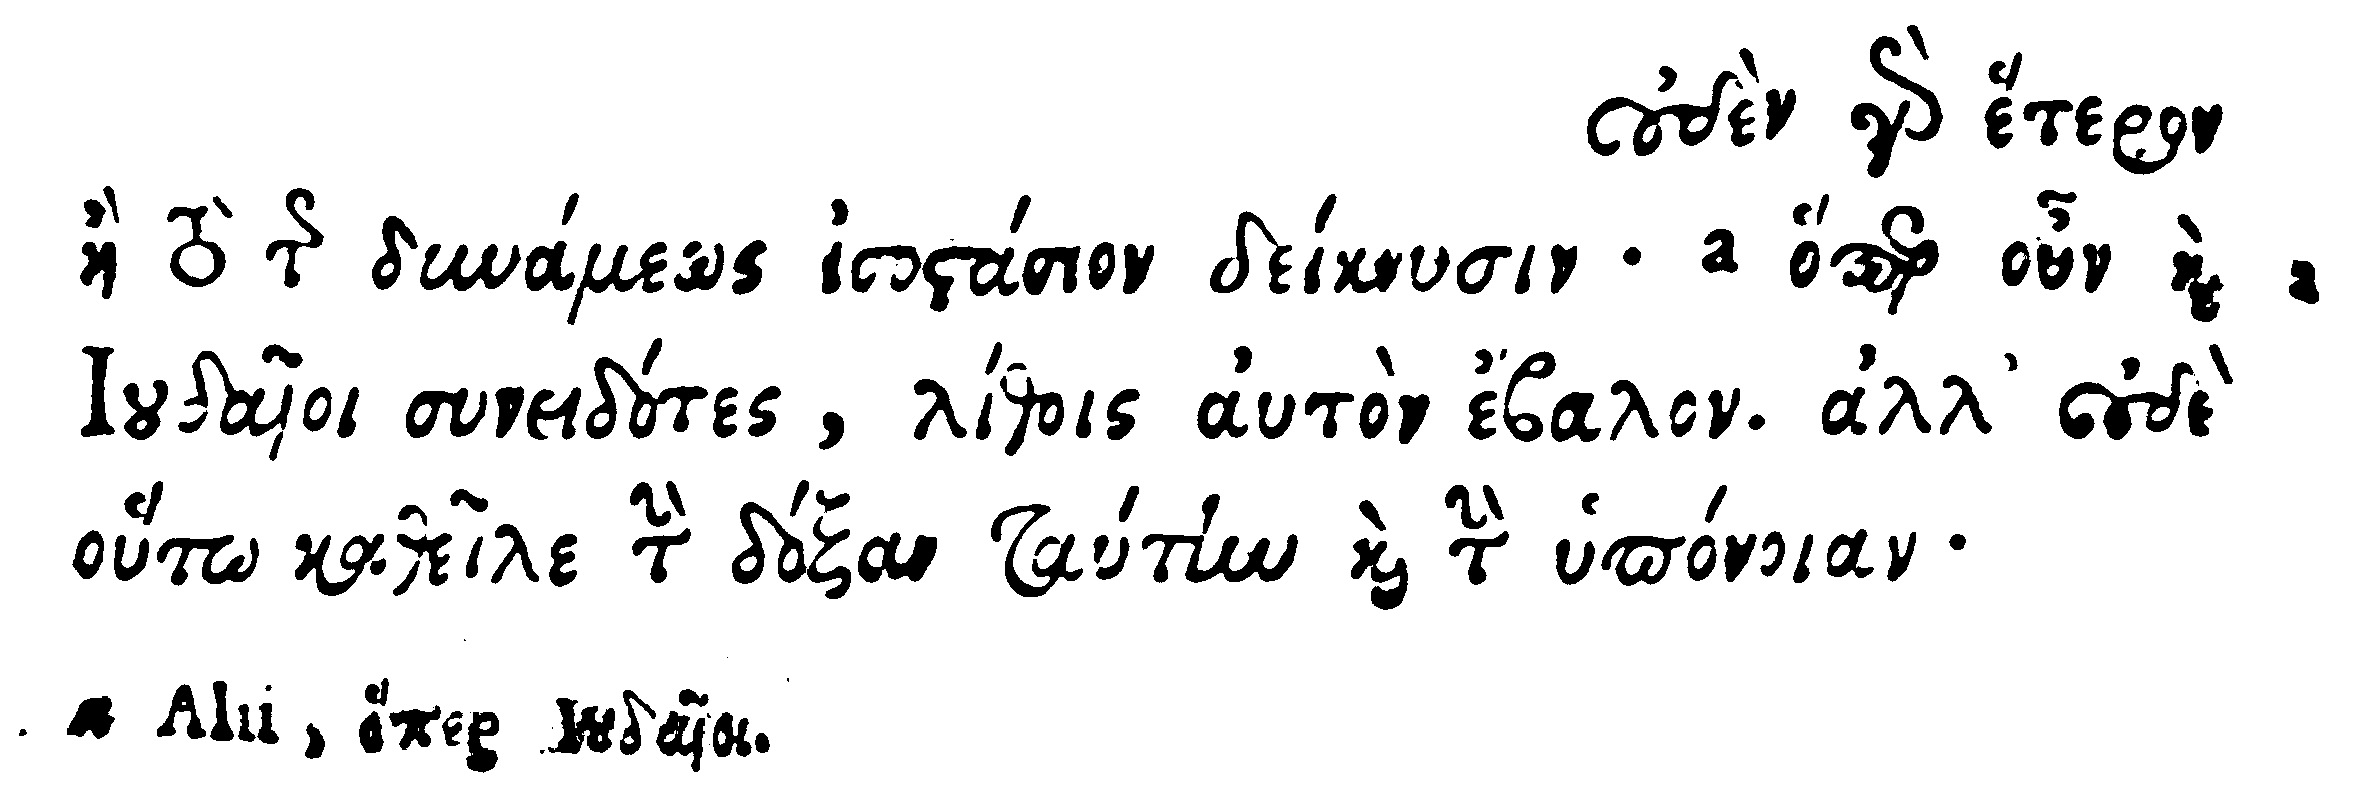 οὐδὲν γὰρ ἕτερον
ἢ τὸ τῆς δυνάμεως ἰσοστάσιον δείκνυσιν · a ὅπερ οὖν καὶ a
Ιουδαῖοι συνειδότες, λίθοις αὐτὸν ἔβαλον. ἀλλ' οὐδὲ
οὕτω καθεῖλε τὴν δόξαν ταύτην καὶ τὴν ὑπόνοιαν ·
a Alii, ὅπερ Ιουδαῖοι.